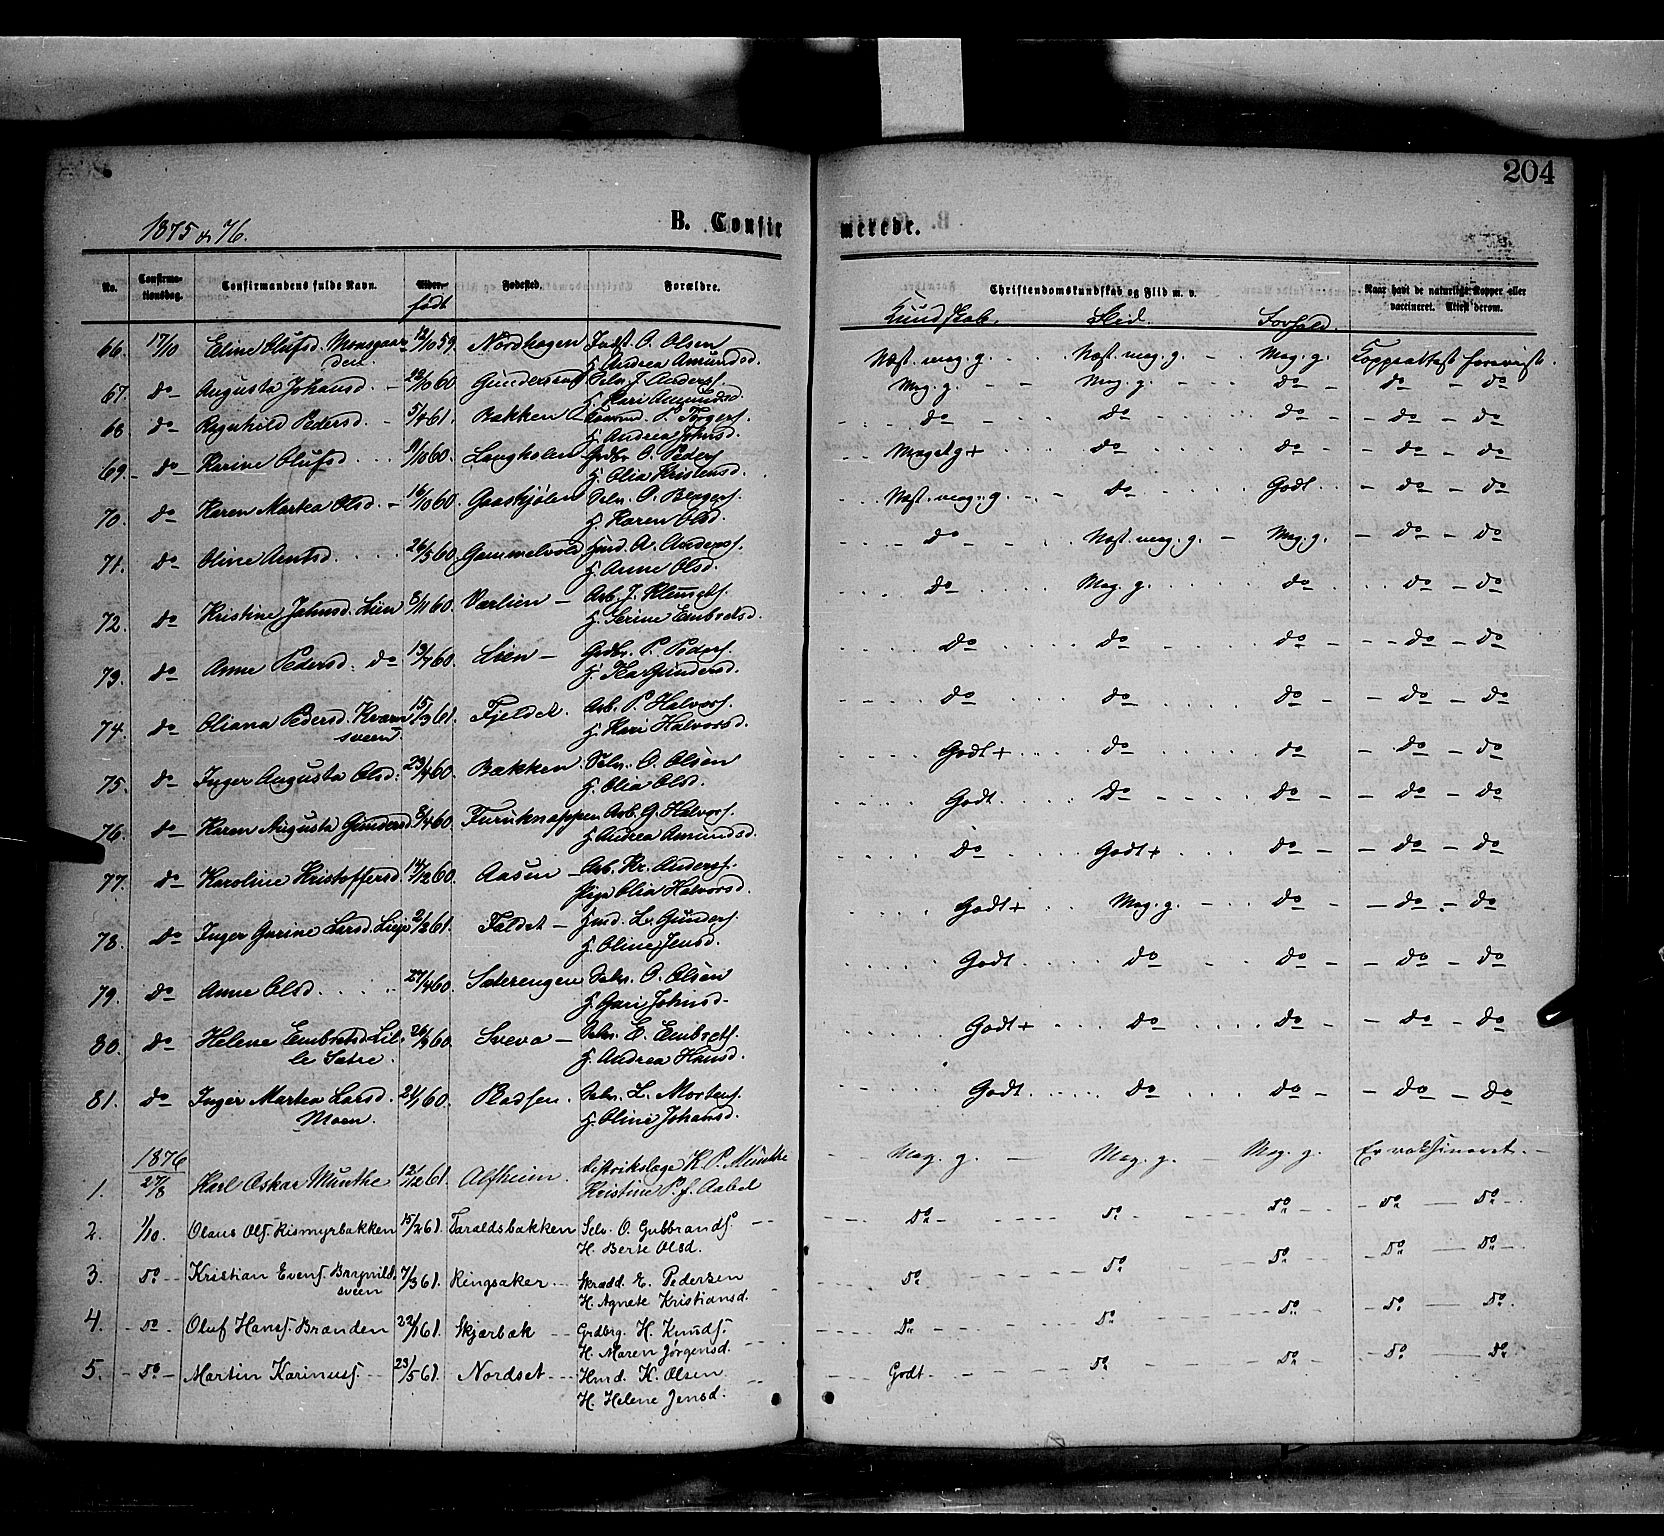 204
1875 & 76.
B. Confirmerede.
No. Confirmationsdag. Confirmandens fulde Navn. Alder. Fødested. Forældre. Christendomskundskab og Flid m. v. Naar havt de naturlige Kopper eller vaccineret. Attest derom.
født Kundskab. Flid. Forhold.
66. 17/10 Eline Olufsd. 12/10 59. Nordhagen Indst. O. Olsen Næst. meg. g. Næst. meg. g. Meg. g. Koppeattest forevist.
den H. Andrea Amundsd.
67. do Augusta Johansd. 12/10 60. Selv. J. Anders. Meg. g. Meg. g. do do do
H. Kari Amundsd.
68. do Ragnhild Pedersd. 5/4 61. Bakken P. do do do do do
H. Andrea Johnsd.
69. do Karine Olufsd. 9/10 60. Langholen Grdbr. O. Peders. Meget g + do do do do
H. Olia Kristensd.
70. do Karen Martea Olsd. 16/10 60. Gaaskjølen Selv. O. Næst. meg. g. do Godt do do
H. Karen Olsd.
71. do Oline Arntsd. 26/5 60. Gammelvold Hmd. A. Anders. do Næst. meg. g. Meg. g. do do
H. Anne Olsd.
72. do Kristine Johnsd. Lien 8/11 60. Værlien Arb. J. Klemets. do Meg. g. do do do
H. Serine Embretsd.
73. do Anne Pedersd. do 13/7 60. Lien Grdbr. P. Peders. do do do do do
H. Kar. Gundersd.
74. do Oliana Pedersd. Kværn 15/3 61. Fjeldet. Arb. P. Halvors. do do do do do
sveen H. Kari Halvorsd.
75. do Inger Augusta Olsd. 23/4 60. Bakken Selv. O. Olsen Godt + do do do do
H. Olia Olsd.
76. do Karen Augusta Gundersd. 8/4 60. Furuknappen Arb. G. Halvors. Godt do do do do
H. Andrea Amundsd.
77. do Karoline Kristoffersd. 14/12 60. Aasen Arb. Kr. Anders. do Godt + do do do
Pige Olia Halvorsd.
78. do Inger Gurine Larsd. Lien 2/2 61. Faldet Hmd. L. Gunders. Godt + Meg. g. do do do
H. Oline Jensd.
79. do Anne Olsd. 27/4 60. Sæterengen Selv. O. Olsen Godt do do do do
H. Guri Johnsd.
80. do Helene Embretsd. Lil- 26/9 60. Sveva Selv. E. Embrets. Godt + do do do do
le Sætre. H. Andrea Hansd.
81. do Inger Martea Larsd. 21/1 60. Pladsen. Selv. L. Mortens. Godt do do do do
Moen. H. Oline Johansd.
1876
1. 27/8 Karl Oskar Munthe 12/12 61. Alfheim. Distriktslæge K. P. Munthe Meg. g. Meg. g. Meg. g. Er vaksineret.
Kristine P. f. Aabel
2. 1/10. Olaus Ols. Rismyrbakken 15/2 61. Taraldsbakken Selv. O. Gubbrands. do do do do do
H. Berte Olsd.
3. do Kristian Evens. Brynild- 7/3 61. Ringsaker Skrædd. E. Pedersen do do do do do
sveen H. Agnete Kristiansd.
4. do Oluf Hans. Brænden 22/1 61. Skjærbæk Grdbrg. H. Knuds. do do do do do
H. Maren Jørgensd.
5. do Martin Karinus. 23/5 61. Nordset Hmd. K. Olsen Godt do do do do
H. Helene Jensd.